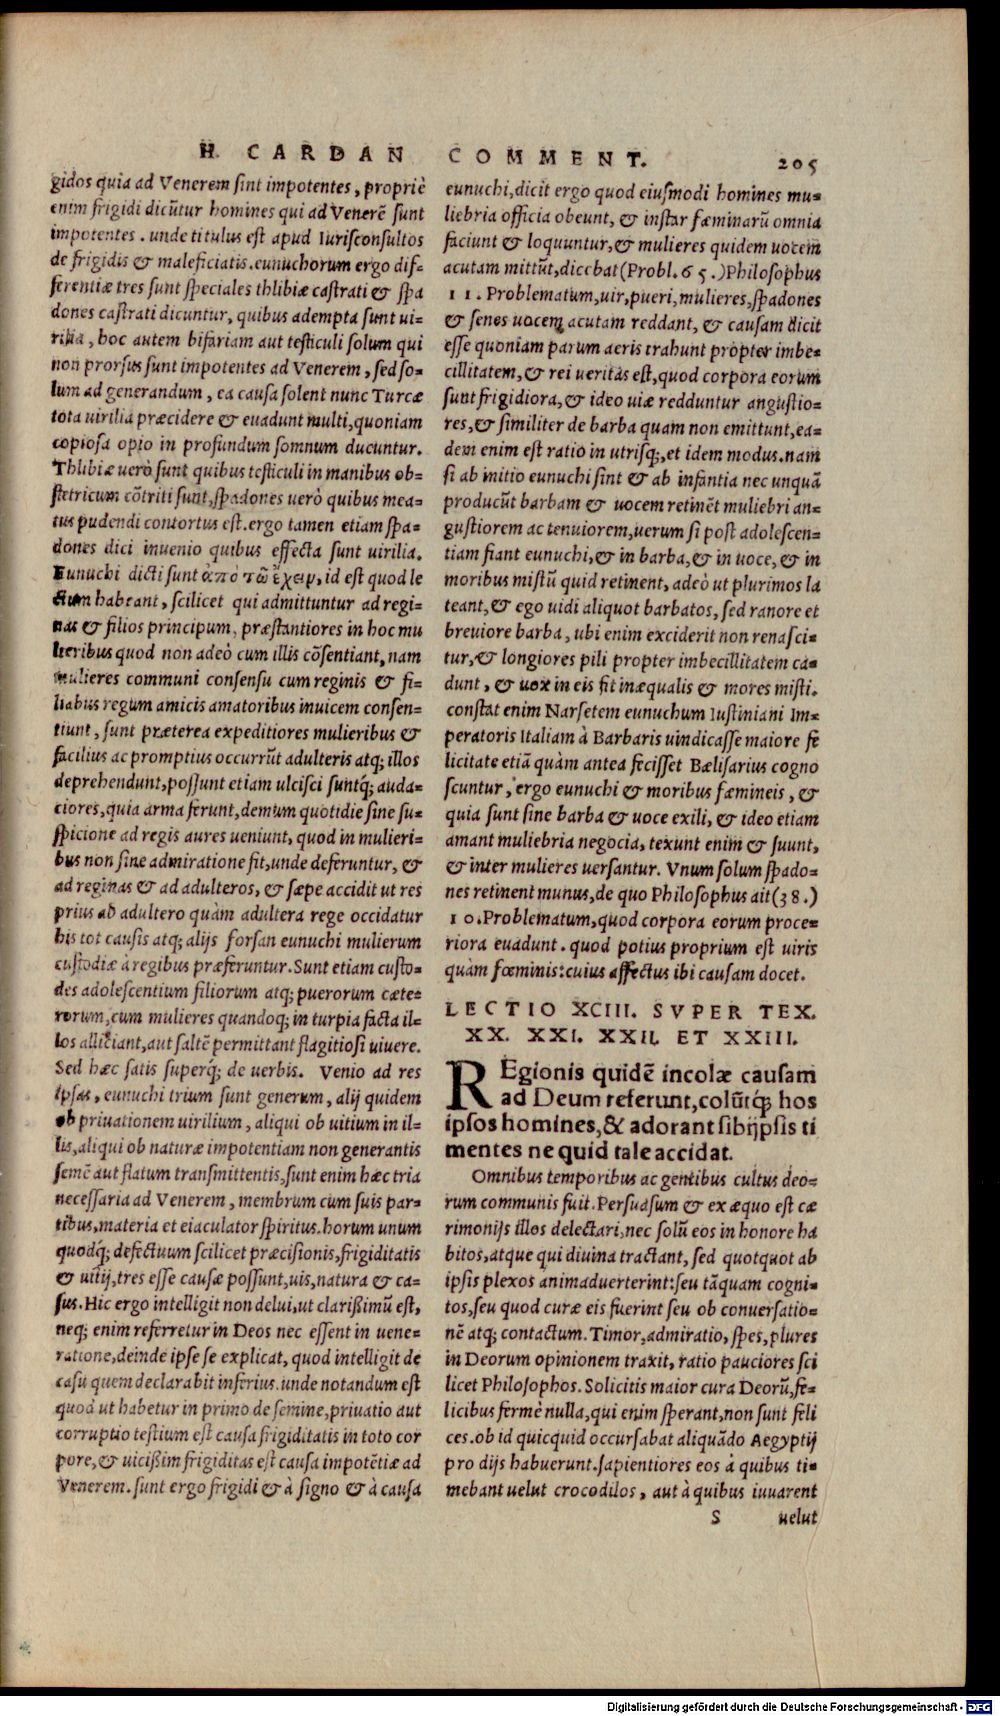 H. CARDAN COMMENT. 205
gidos quia ad Venerem sint impotentes, propriè
enim frigidi dicūtur homines qui ad Venerē sunt
impotentes. unde titulus est apud Iurisconsultos
de frigidis & maleficiatis. eunuchorum ergo dif=
ferentiæ tres sunt speciales thlibiæ castrati & spa
dones castrati dicuntur, quibus adempta sunt ui=
rilia, hoc autem bifariam aut testiculi solum qui
non prorsus sunt impotentes ad Venerem, sed so=
lum ad generandum, ea causa solent nunc Turcæ
tota uirilia præcidere & euadunt multi, quoniam
copiosa opio in profundum somnum ducuntur.
Thlibiæ uerò sunt quibus testiculi in manibus ob=
stetricum cōtriti sunt, spadones uerò quibus mea=
tus pudendi contortus est. ergo tamen etiam spa=
dones dici inuenio quibus effecta sunt uirilia.
Eunuchi dicti sunt ἀπὸ τῶ ἔχειν, id est quod le
ctum habeant, scilicet qui admittuntur ad regi=
nas & filios principum, præstantiores in hoc mu
lieribus quod non adeò cum illis cōsentiant, nam
mulieres communi consensu cum reginis & fi=
liabus regum amicis amatoribus inuicem consen=
tiunt, sunt præterea expeditiores mulieribus &
facilius ac promptius occurrūt adulteris atq; illos
deprehendunt, possunt etiam ulcisci suntq; auda=
ciores, quia arma ferunt, demum quotidie sine su=
spicione ad regis aures ueniunt, quod in mulieri=
bus non sine admiratione fit, unde deferuntur, &
ad reginas & ad adulteros, & sæpe accidit ut res
prius ab adultero quàm adultera rege occidatur
his tot causis atq; alijs forsan eunuchi mulierum
custodiæ à regibus præferuntur. Sunt etiam custo=
des adolescentium filiorum atq; puerorum cæte=
rorum, cum mulieres quandoq; in turpia facta il=
los alliciant, aut saltē permittant flagitiosi uiuere.
Sed hæc satis superq; de uerbis. Venio ad res
ipsas, eunuchi trium sunt generum, alij quidem
ob priuationem uirilium, aliqui ob uitium in il=
lis, aliqui ob naturæ impotentiam non generantis
semē aut flatum transmittentis, sunt enim hæc tria
necessaria ad Venerem, membrum cum suis par=
tibus, materia et eiaculator spiritus. horum unum
quodq; defectuum scilicet præcisionis, frigiditatis
& uitij, tres esse causæ possunt, uis, natura & ca=
sus. Hic ergo intelligit non de lui, ut clarißimū est,
neq; enim referretur in Deos nec essent in uene=
ratione, deinde ipse se explicat, quod intelligit de
casu quem declarabit inferius. unde notandum est
quod ut habetur in primo de semine, priuatio aut
corruptio testium est causa frigiditatis in toto cor
pore, & uicißim frigiditas est causa impotētiæ ad
Venerem. sunt ergo frigidi & à signo & à causa
eunuchi, dicit ergo quod eiusmodi homines mu=
liebria officia obeunt, & instar fæminarū omnia
faciunt & loquuntur, & mulieres quidem uocem
acutam mittūt, dicebat (Probl. 65.) Philosophus
11. Problematum, uir, pueri, mulieres, spadones
& senes uocem acutam reddant, & causam dicit
esse quoniam parum aeris trahunt propter imbe=
cillitatem, & rei ueritas est, quod corpora eorum
sunt frigidiora, & ideo uiæ redduntur angustio=
res, & similiter de barba quam non emittunt, ea=
dem enim est ratio in utrisq;, et idem modus. nam
si ab initio eunuchi sint & ab infantia nec unquā
producūt barbam & uocem retinēt muliebri an=
gustiorem ac tenuiorem, uerum si post adolescen=
tiam fiant eunuchi, & in barba, & in uoce, & in
moribus mistū quid retinent, adeò ut plurimos la
teant, & ego uidi aliquot barbatos, sed rariore et
breuiore barba, ubi enim exciderit non renasci=
tur, & longiores pili propter imbecillitatem ca=
dunt, & uox in eis fit inæqualis & mores misti.
constat enim Narsetem eunuchum Iustiniani Im=
peratoris Italiam à Barbaris uindicasse maiore fe
licitate etiā quàm antea fecisset Bælisarius cogno
scuntur, ergo eunuchi & moribus fæmineis, &
quia sunt sine barba & uoce exili, & ideo etiam
amant muliebria negocia, texunt enim & suunt,
& inter mulieres uersantur. Vnum solum spado=
nes retinent munus, de quo Philosophus ait (38.)
10. Problematum, quod corpora eorum proce=
riora euadunt. quod potius proprium est uiris
quàm fœminis: cuius affectus ibi causam docet.
LECTIO XCIII. SVPER TEX.
XX. XXI. XXII. ET XXIII.
REgionis quidē incolæ causam
ad Deum referunt, colūtq; hos
ipsos homines, & adorant sibijpsis ti
mentes ne quid tale accidat.
Omnibus temporibus ac gentibus cultus deo=
rum communis fuit. Persuasum & ex æquo est cæ
rimonijs illos delectari, nec solū eos in honore ha
bitos, atque qui diuina tractant, sed quotquot ab
ipsis plexos animaduerterint: seu tāquam cogni=
tos, seu quod curæ eis fuerint seu ob conuersatio=
nē atq; contactum. Timor, admiratio, spes, plures
in Deorum opinionem traxit, ratio pauciores sci
licet Philosophos. Solicitis maior cura Deorū, fe=
licibus fermè nulla, qui enim sperant, non sunt feli
ces. ob id quicquid occursabat aliquādo Aegyptij
pro dijs habuerunt. sapientiores eos à quibus ti=
mebant uelut crocodilos, aut à quibus iuuarent
S uelut
Digitalisierung gefördert durch die Deutsche Forschungsgemeinschaft - DFG